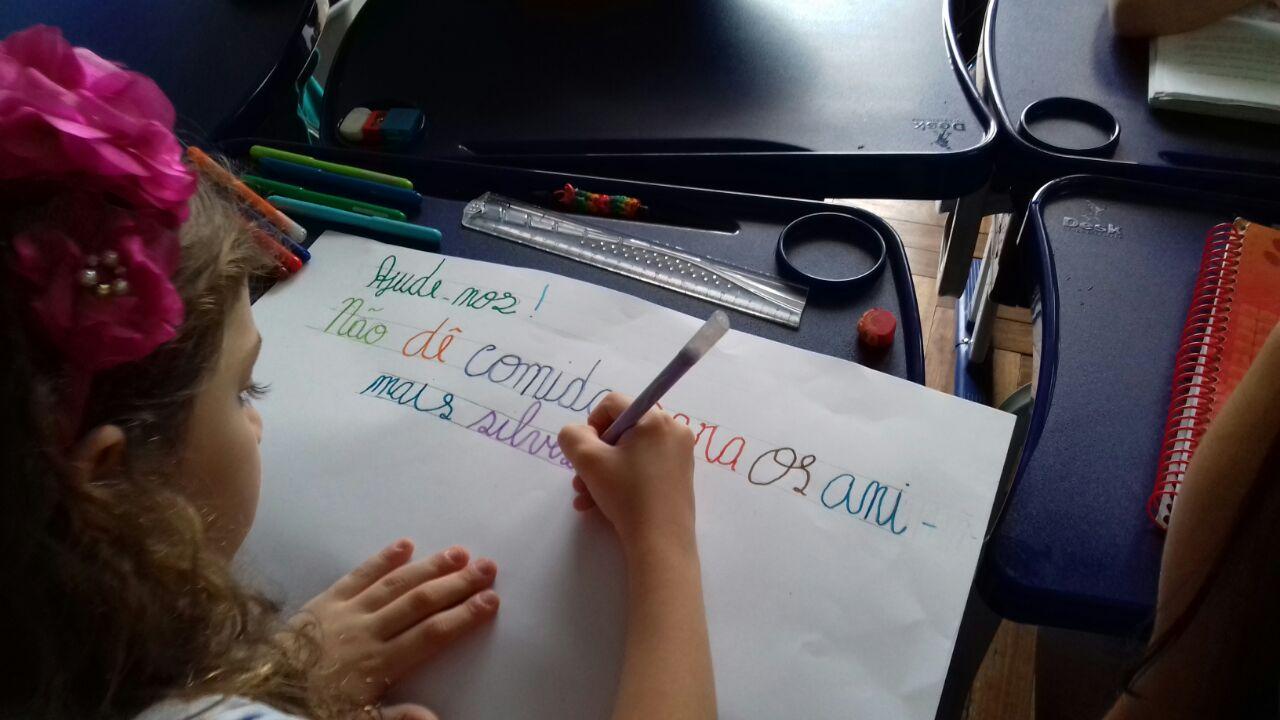 Ajude-nos!
Não dê comida para os ani-
mais silve
Desk
Desk